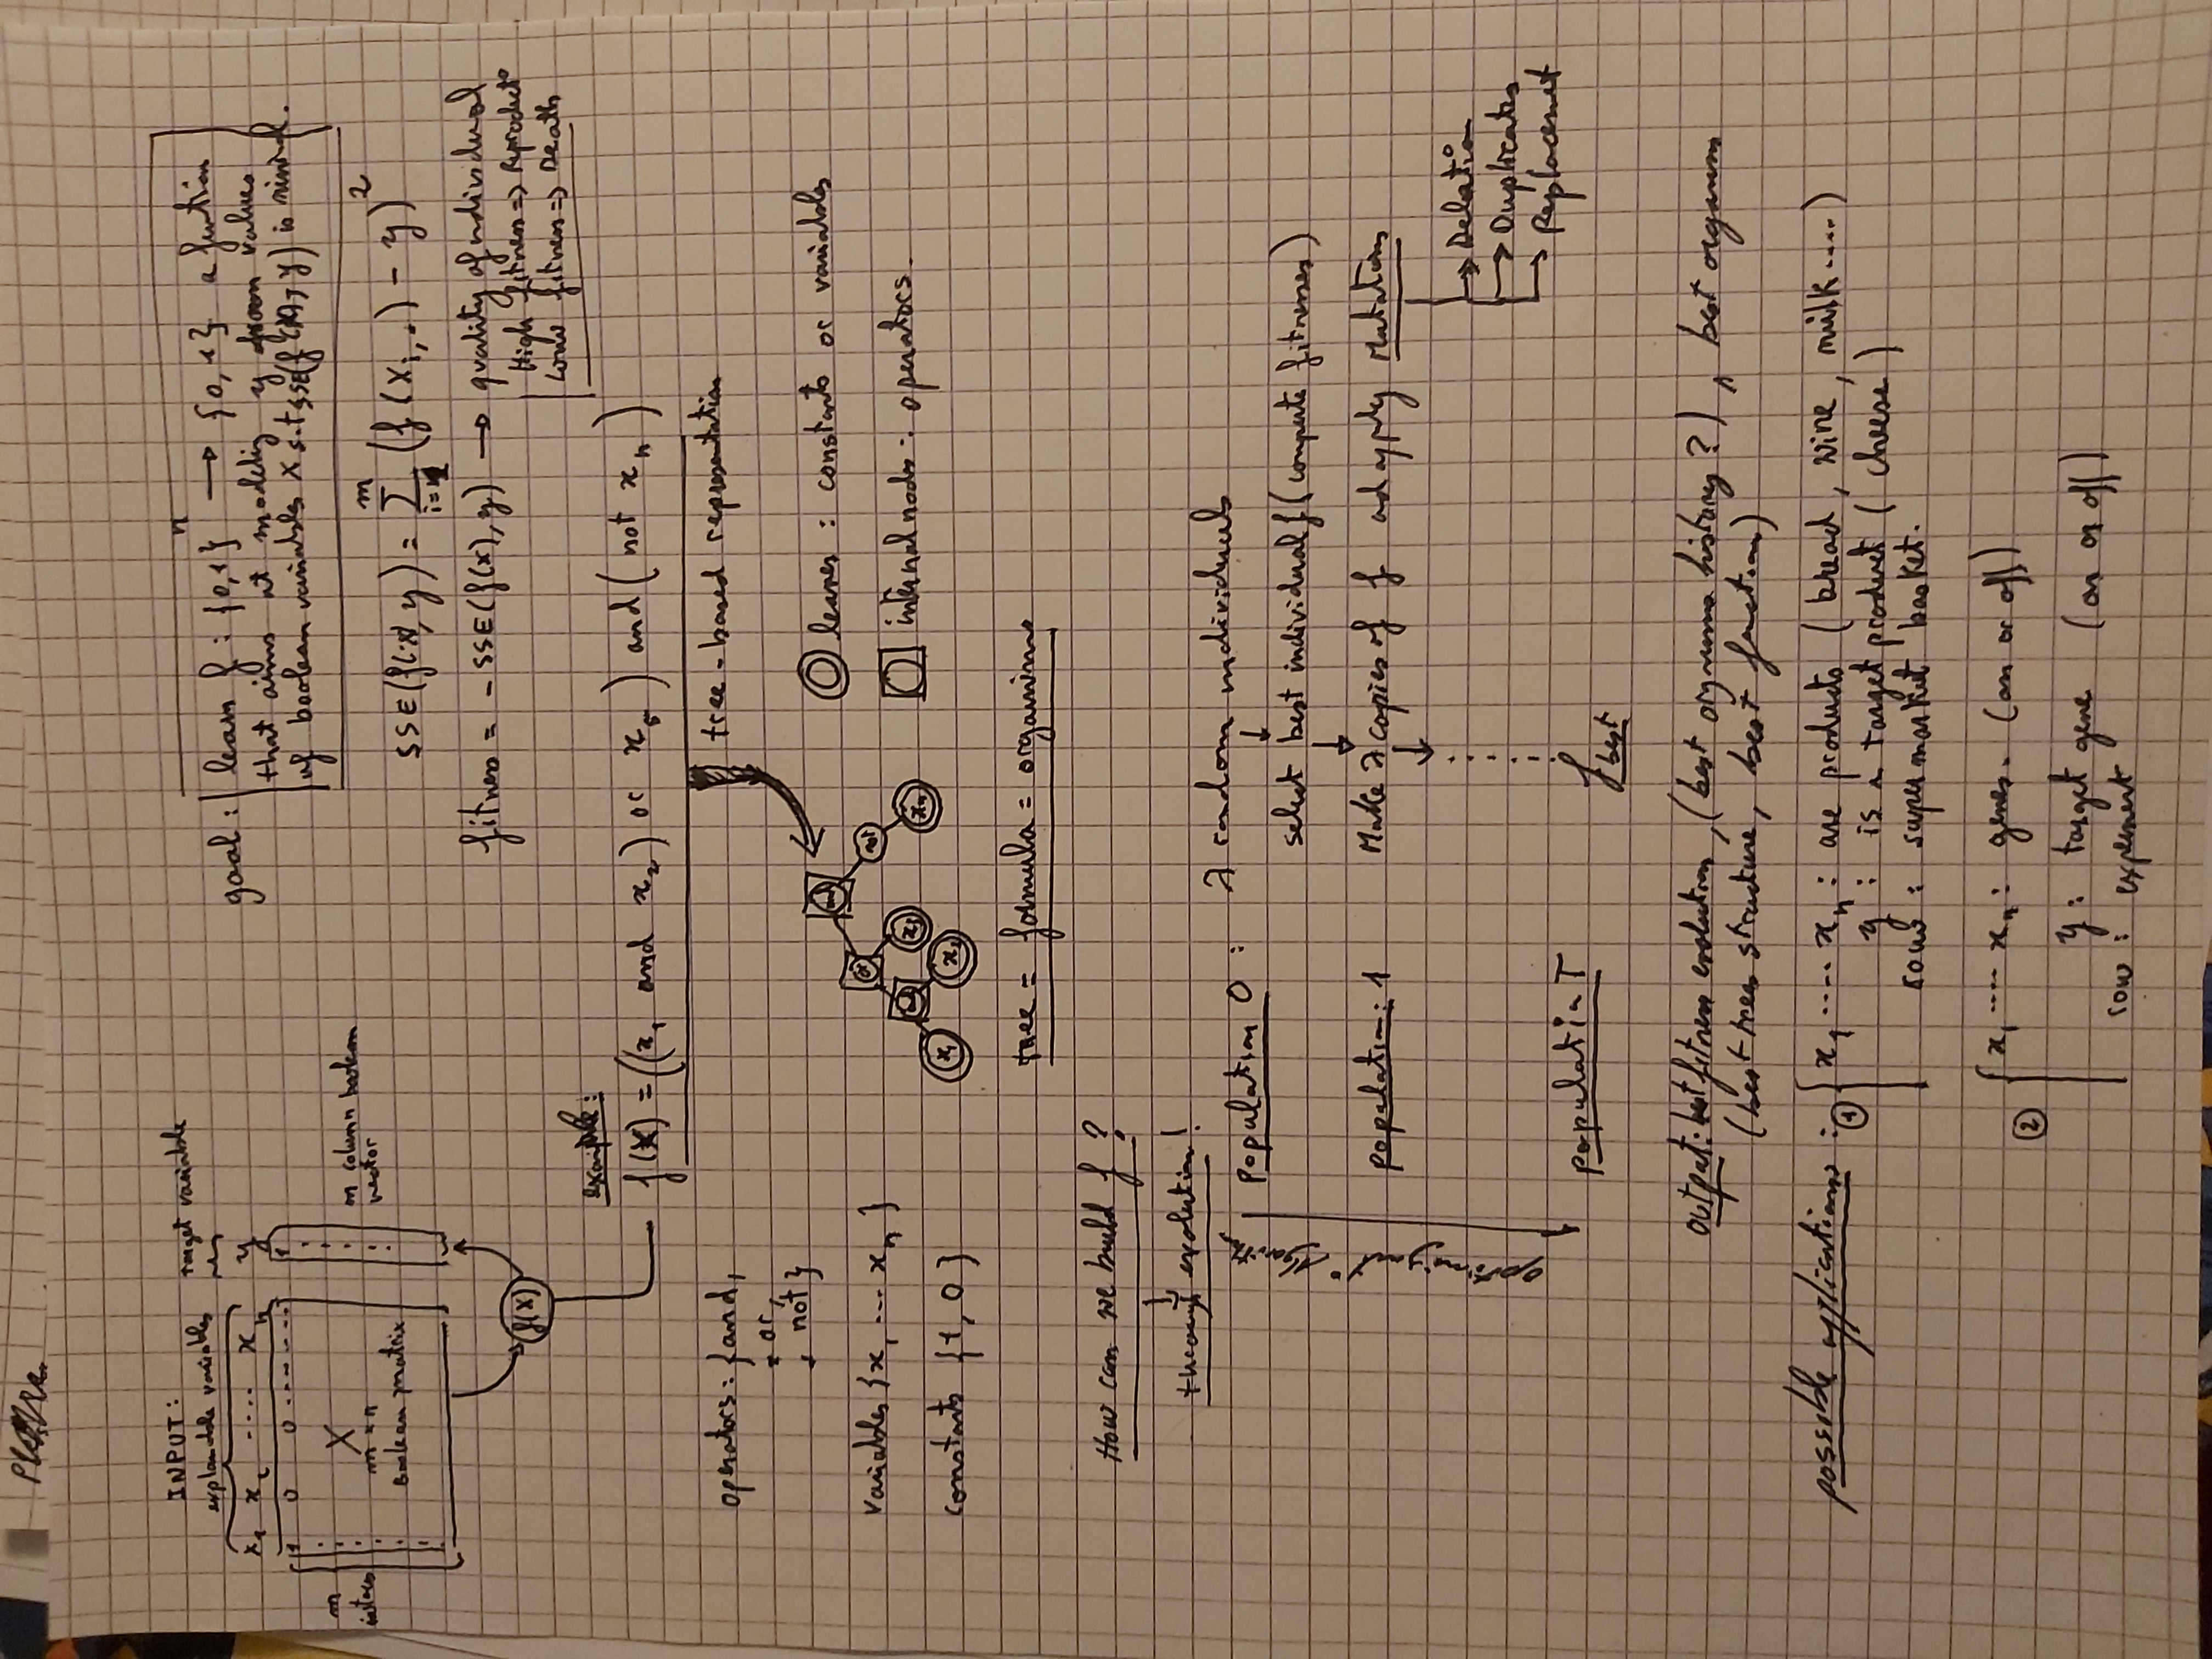 INPUT:
explanable variables
target variable
x₁ x₂ .... xₙ
y
1 0 0 ........
1
m
X
m × n
Boolean matrix
m column boolean
vector
f(X)
goal: learn f : {0,1}ⁿ → {0,1} a function
that aims at modeling y from values
of boolean variables X s.t SSE(f(X), y) is minimal.
SSE(f(X), y) = Σ (f(Xᵢ,.) - y)²
m
i=1
fitness = - SSE(f(X), y) → quality of individual
High fitness => Reproducto
Low fitness => Death
example:
f(X) = ((x₁ and x₂) or x₅) and (not xₙ)
tree-based representation
operators: {and,
or,
not}
variables {x₁ ... xₙ}
constants {1, 0}
and
or
not
and
x₅
xₙ
x₁
x₂
leaves : constants or variables
internal nodes: operators.
tree = formula = organims
How can we build f ?
↓
through evolution!
population 0 : λ random individuals
↓
select best individual f (compute fitnesses)
↓
population: 1 Make λ copies of f and apply Mutations
↓
→ Deletion
→ Duplicates
→ Replacemet
populatio T
f best
output: best fitness evolution, (best organims history ?), best organims
(best trees structure, best function)
possible applications : ① x₁ .... xₙ : are products (bread, wine, milk ....)
y : is a target product (cheese)
row : supermarket basket.
② x₁ .... xₙ : genes. (on or off)
y : target gene (on or off)
row : experiment